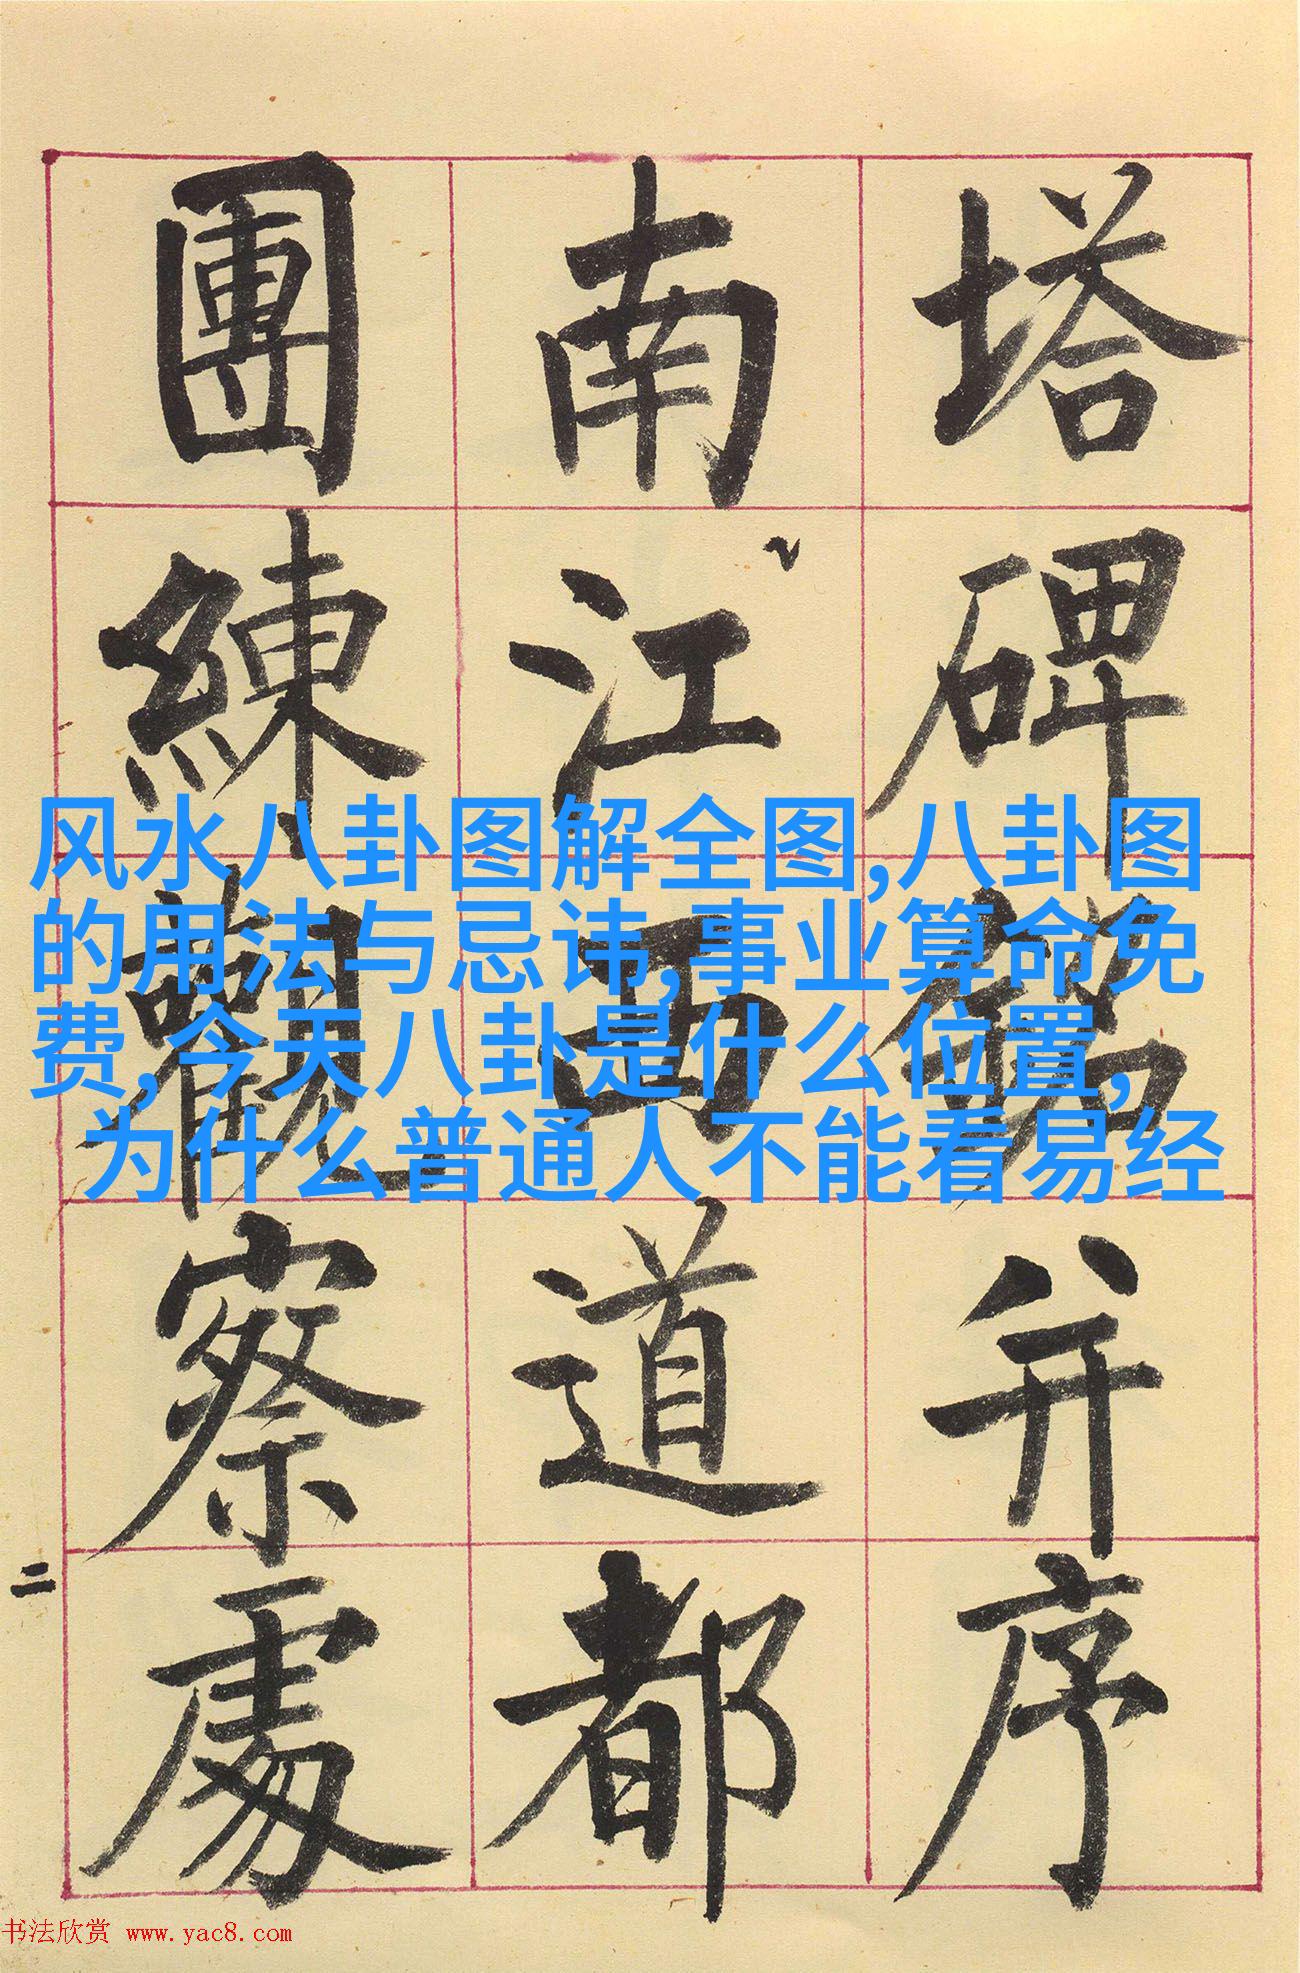 塔碑銘并序
南江西道都
團練觀察處
二
风水八卦图解全图,八卦图
的用法与忌讳,事业算命免
费,今天八卦是什么位置,
为什么普通人不能看易经
书法欣赏 www.yac8.com